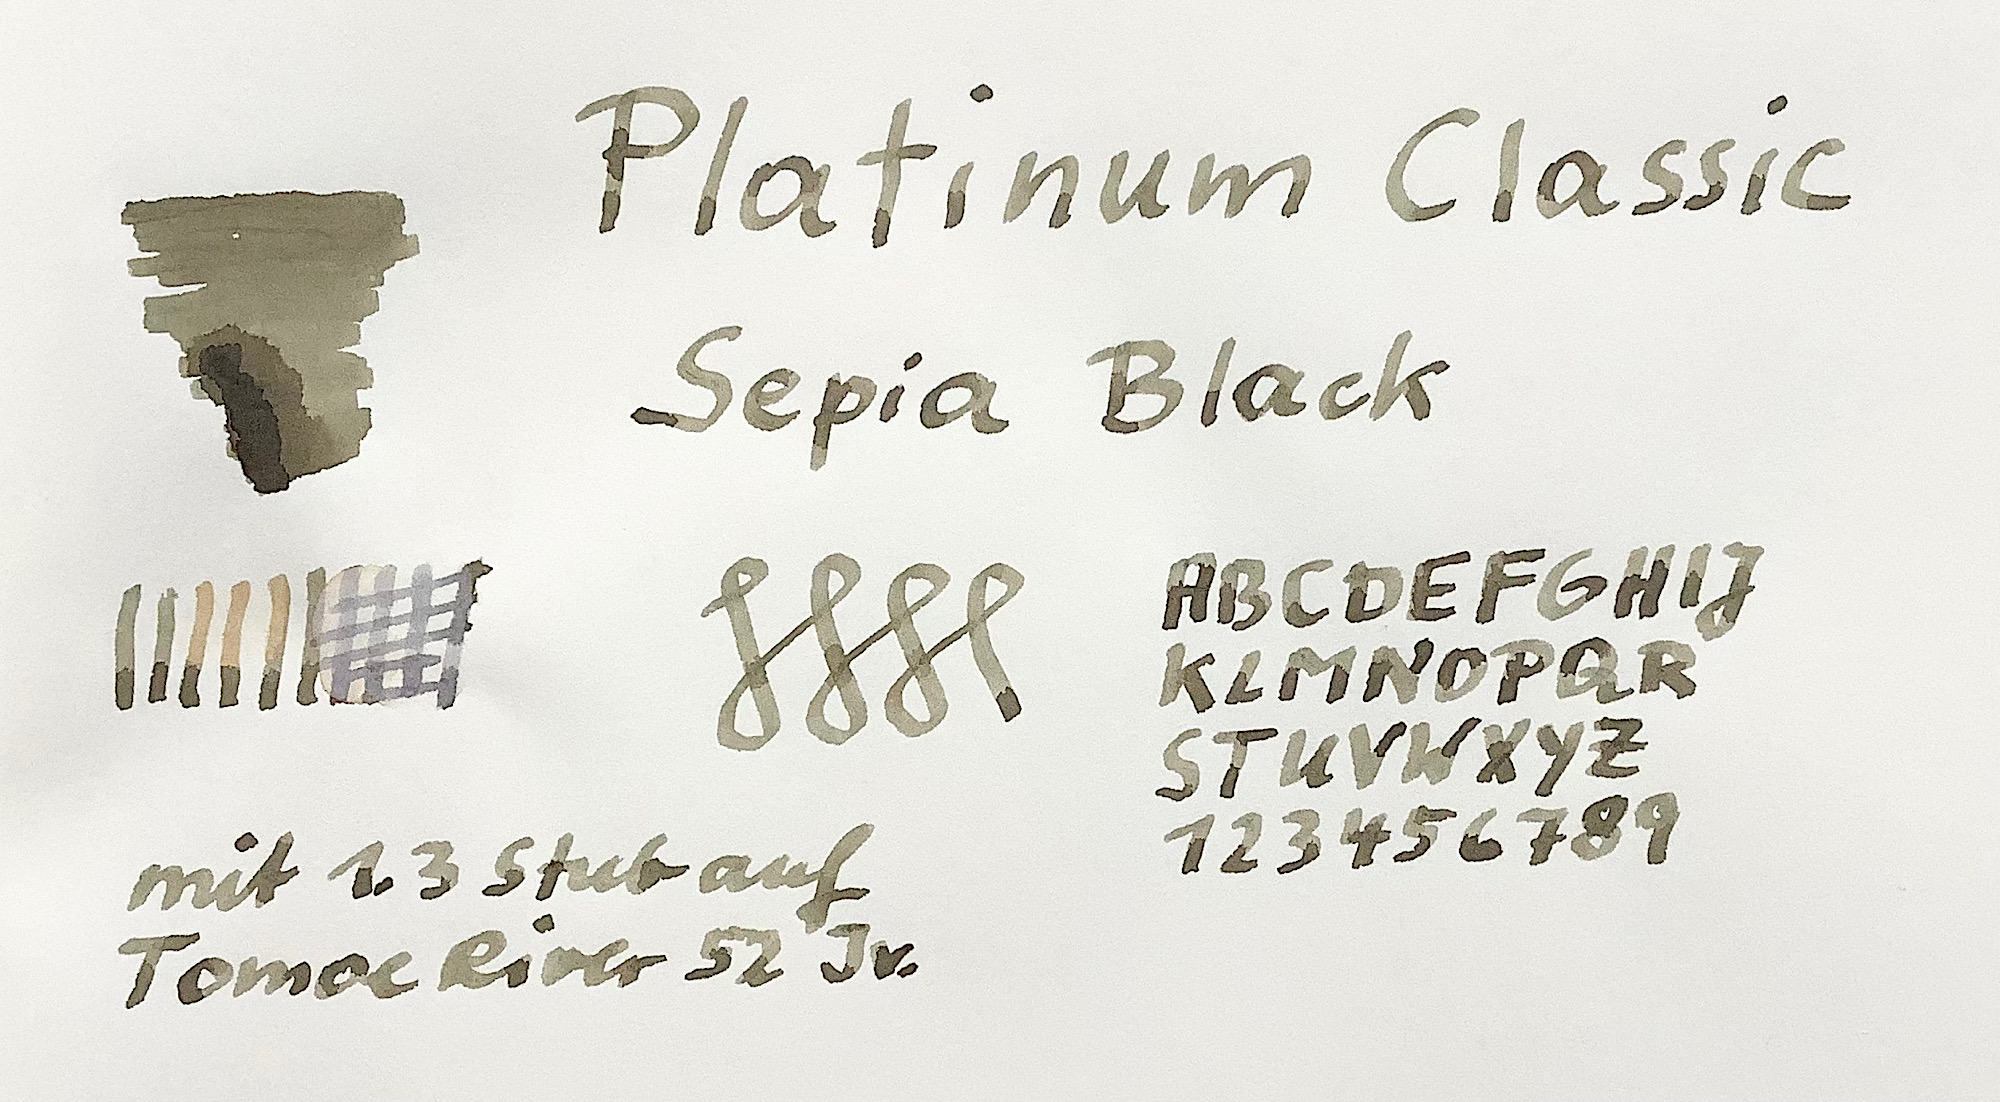 Platinum Classic
Sepia Black
ABCDEFGHIJ
KLMNOPQR
STUVWXYZ
123456789
mit 1.3 Stub auf
Tomoe River 52 Jr.